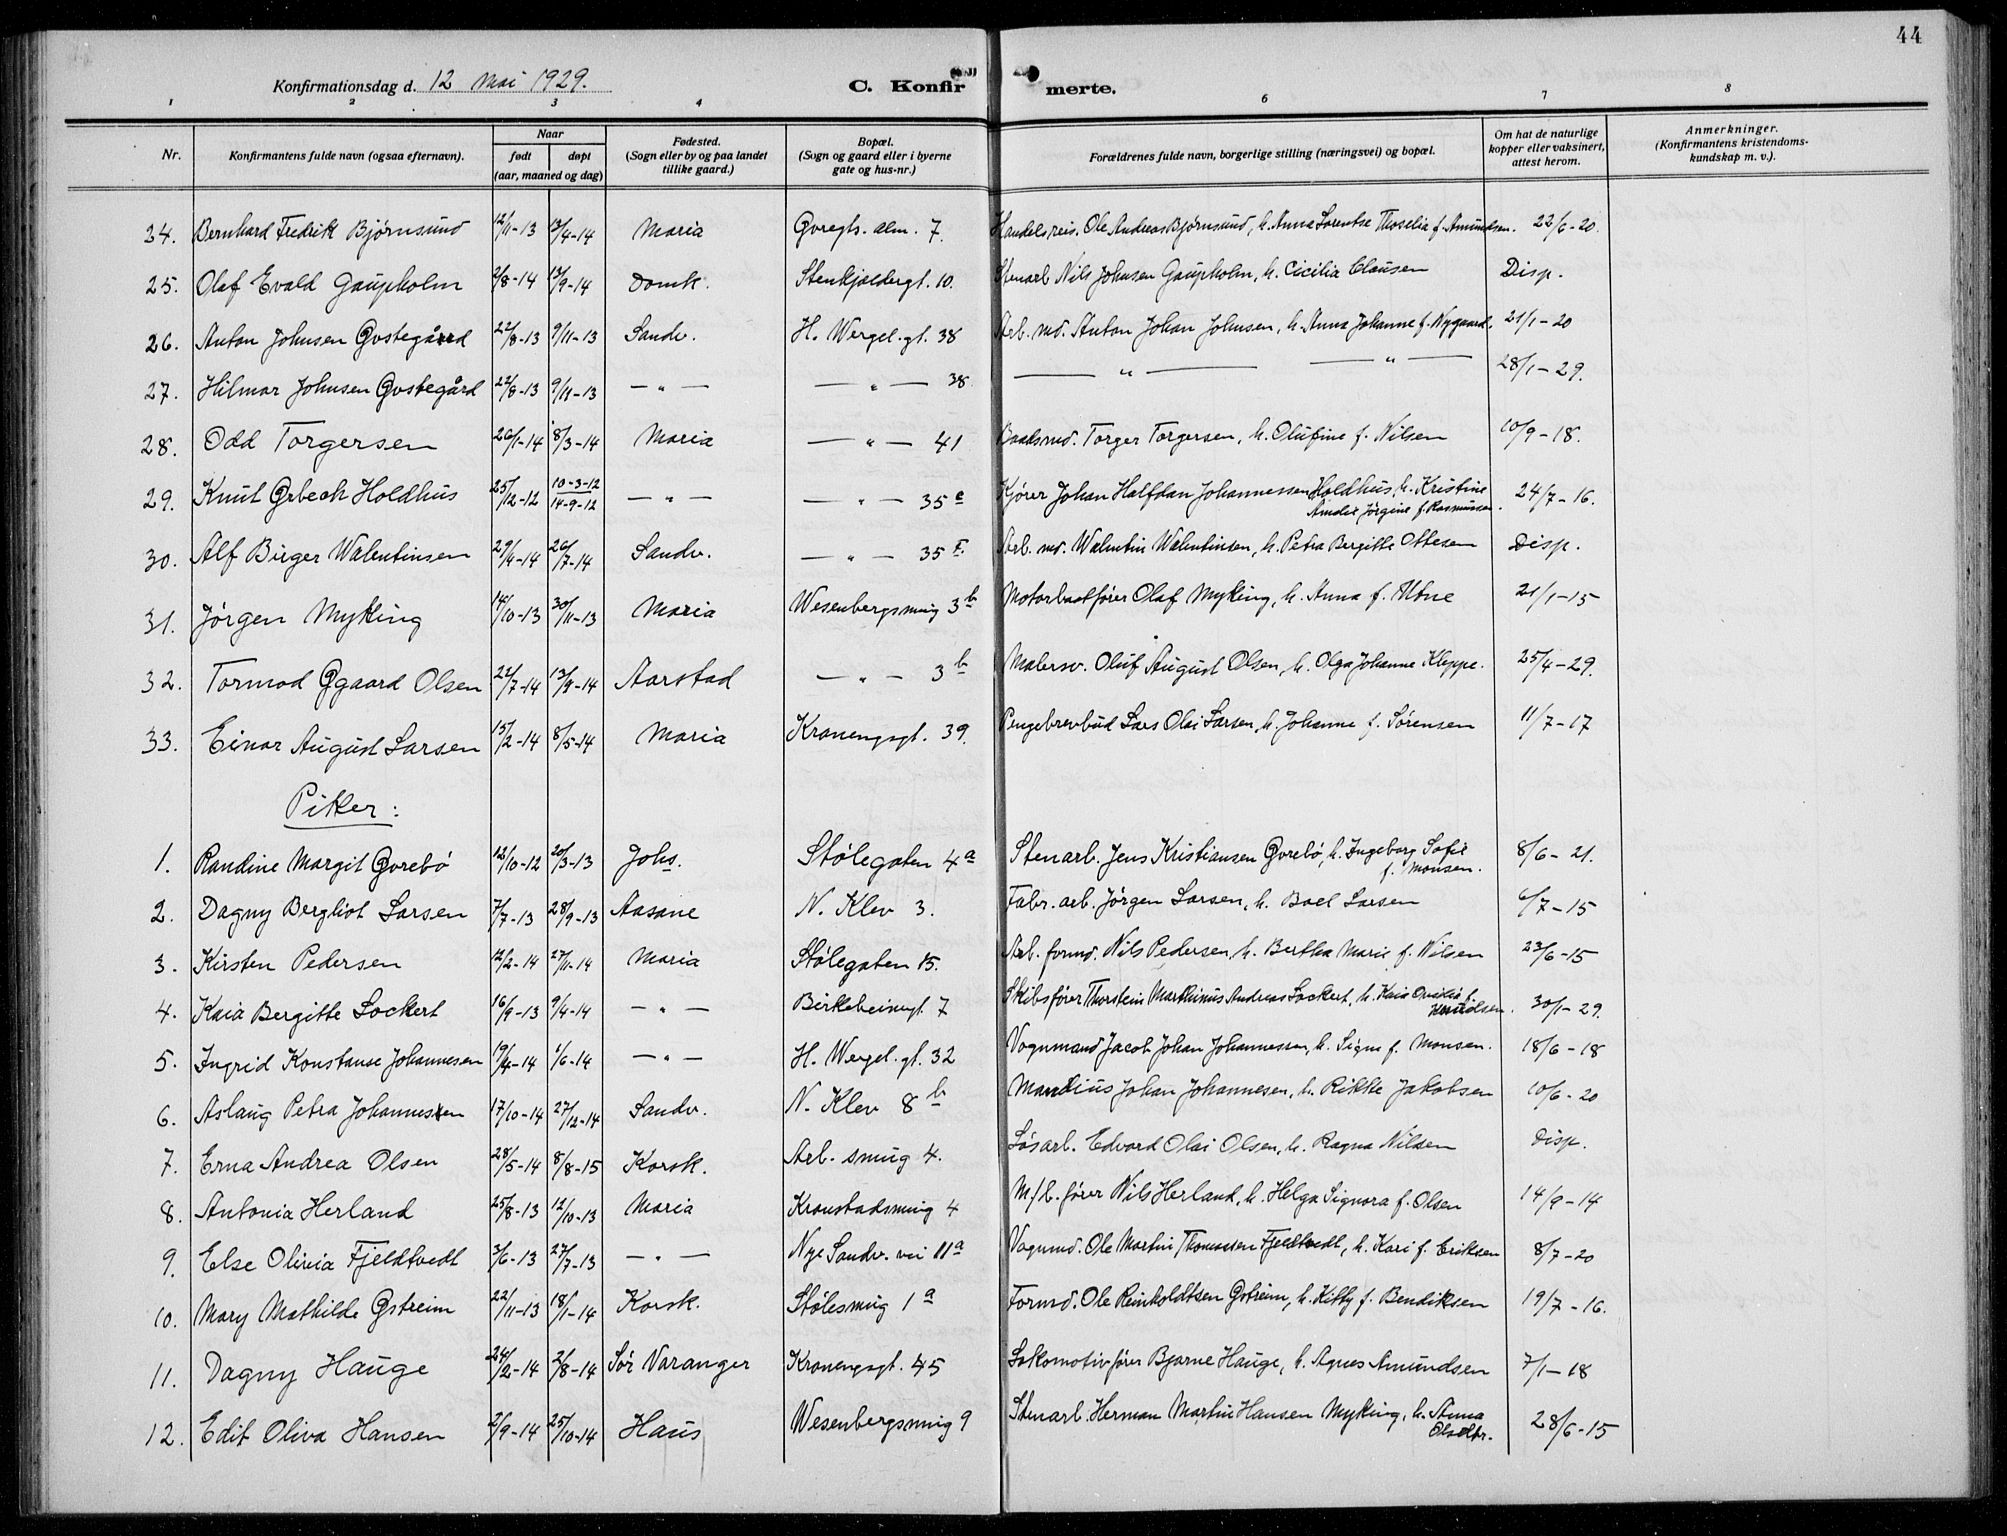 44
Konfirmationsdag d. 12 Mai 1929.
C. Konfirmerte.
1 2 3 4 6 7 8
Nr.
Konfirmantens fulde navn (ogsaa efternavn).
Naar
født døpt
(aar, maaned og dag)
Fødested.
(Sogn eller by og paa landet
tillike gaard.)
Bopæl.
(Sogn og gaard eller i byerne
gate og hus-nr.)
Forældrenes fulde navn, borgerlige stilling (næringsvei) og bopæl.
Om hat de naturlige
kopper eller vaksinert,
attest herom.
Anmerkninger.
(Konfirmantens kristendoms-
kundskap m. v.).
24. Bernhard Fredrik Bjørnsund 12/11-13 13/4-14 Maria Øvregts. alm. 7. Handelsreis. Ole Andreas Bjørnsund, h. Anna Lorentse Thoselia f. Amundsen. 22/6-20.
25. Olaf Evald Gaupholm 2/8-14 13/9-14 Domk. Stenkjeldergt. 10. Stenarb. Nils Johnsen Gaupholm, h. Cicilia Clausen Disp.
26. Anton Johnsen Østegård 22/8-13 9/11-13 Sandv. H. Wergel. gt. 38 Arb. md. Anton Johan Johnsen, h. Anna Johanne f. Nygaard. 21/1-20
27. Hilmar Johnsen Østegård 22/8-13 9/11-13 — " — — " — 38 — " — — " — 28/1-29.
28. Odd Torgersen 26/1-14 8/3-14 Maria — " — 41 Baadsmd. Torger Torgersen, h. Olufine f. Nilsen 10/9-18.
29. Knut Ørbech Holdhus 25/12-12 10-3-12 14-9-12 — " — — " — 35 e Kjører Johan Halfdan Johannessen Holdhus, h. Kristine
Amalie Jørgine f. Rasmussen. 24/7-16.
30. Alf Birger Walentinsen 29/4-14 26/7-14 Sandv. — " — 35 F. Arb. md. Walentin Walentinsen, h. Petra Bergitte Ottesen Disp.
31. Jørgen Myking 14/10-13 30/11-13 Maria Wesenbergsmug 3 b Motorbaatfører Olaf Myking, h. Anna f. Utne 21/1-15
32. Tormod Øgaard Olsen 22/7-14 13/9-14 Aarstad — " — 3 b Malersv. Oluf August Olsen, h. Olga Johanne Kleppe. 25/4-29.
33. Einar August Larsen 15/2-14 8/5-14 Maria Kronengsgt. 39. Pengebrevbud Lars Olai Larsen, h. Johanne f. Sørensen 11/7-17
Piker:
1. Randine Margit Øvrebø 12/10-12 20/3-13 Johs. Stølegaten 4 a Stenarb. Jens Kristiansen Øvrebø, h. Ingeborg Sofie
f. Monsen. 8/6-21.
2. Dagny Bergliot Larsen 7/7-13 28/9-13 Aasane N. Klev 3. Fabr. arb. Jørgen Larsen, h. Boel Larsen 6/7-15
3. Kirsten Pedersen 12/2-14 27/11-14 Maria Stølegaten 15. Arb. formd. Nils Pedersen, h. Bertha Marie f. Nilsen 23/6-15
4. Kaia Bergitte Lockert 16/9-13 9/4-14 — " — Birkebeinergt. 7 Skibsfører Thorstein Marthinus Andreas Lockert, h. Kaia f.
Knudsen. 30/1-29.
5. Ingrid Konstanse Johannesen 19/4-14 1/6-14 — " — H. Wergel. gt. 32 Vognmand Jacob Johan Johannessen, h. Signe f. Monsen. 18/6-18
6. Aslaug Petra Johannesen 17/10-14 27/12-14 Sandv. N. Klev 8 b Mandius Johan Johannesen, h. Rikke Jakobsen 10/6-20
7. Erna Andrea Olsen 28/5-14 8/8-15 Korsk. Arb. smug 4. Løsarb. Edvard Olai Olsen, h. Ragna Nilsen Disp.
8. Antonia Herland 25/8-13 12/10-13 Maria Kronstadsmug 4 M/b. fører Nils Herland, h. Helga Signora f. Olsen 14/9-14
9. Else Olivia Fjeldtvedt 3/6-13 27/7-13 — " — Nye Sandv. vei 11 a Vognmd. Ole Martin Thomassen Fjeldtvedt, h. Kari f. Eriksen 8/7-20
10. Mary Mathilde Østreim 22/11-13 18/1-14 Korsk. Stølesmug 1 a Formd. Ole Reinholdtsen Østreim, h. Kitty f. Bendiksen 19/7-16.
11. Dagny Hauge 24/2-14 2/8-14 Sør Varanger Kronengsgt. 45 Lokomotivfører Bjarne Hauge, h. Agnes Amundsen 7/1-18
12. Edit Oliva Hansen 2/9-14 25/10-14 Haus Wesenbergsmug 9 Stenarb. Herman Martin Hansen Myking, h. Anna
Olsdtr. 28/6-15